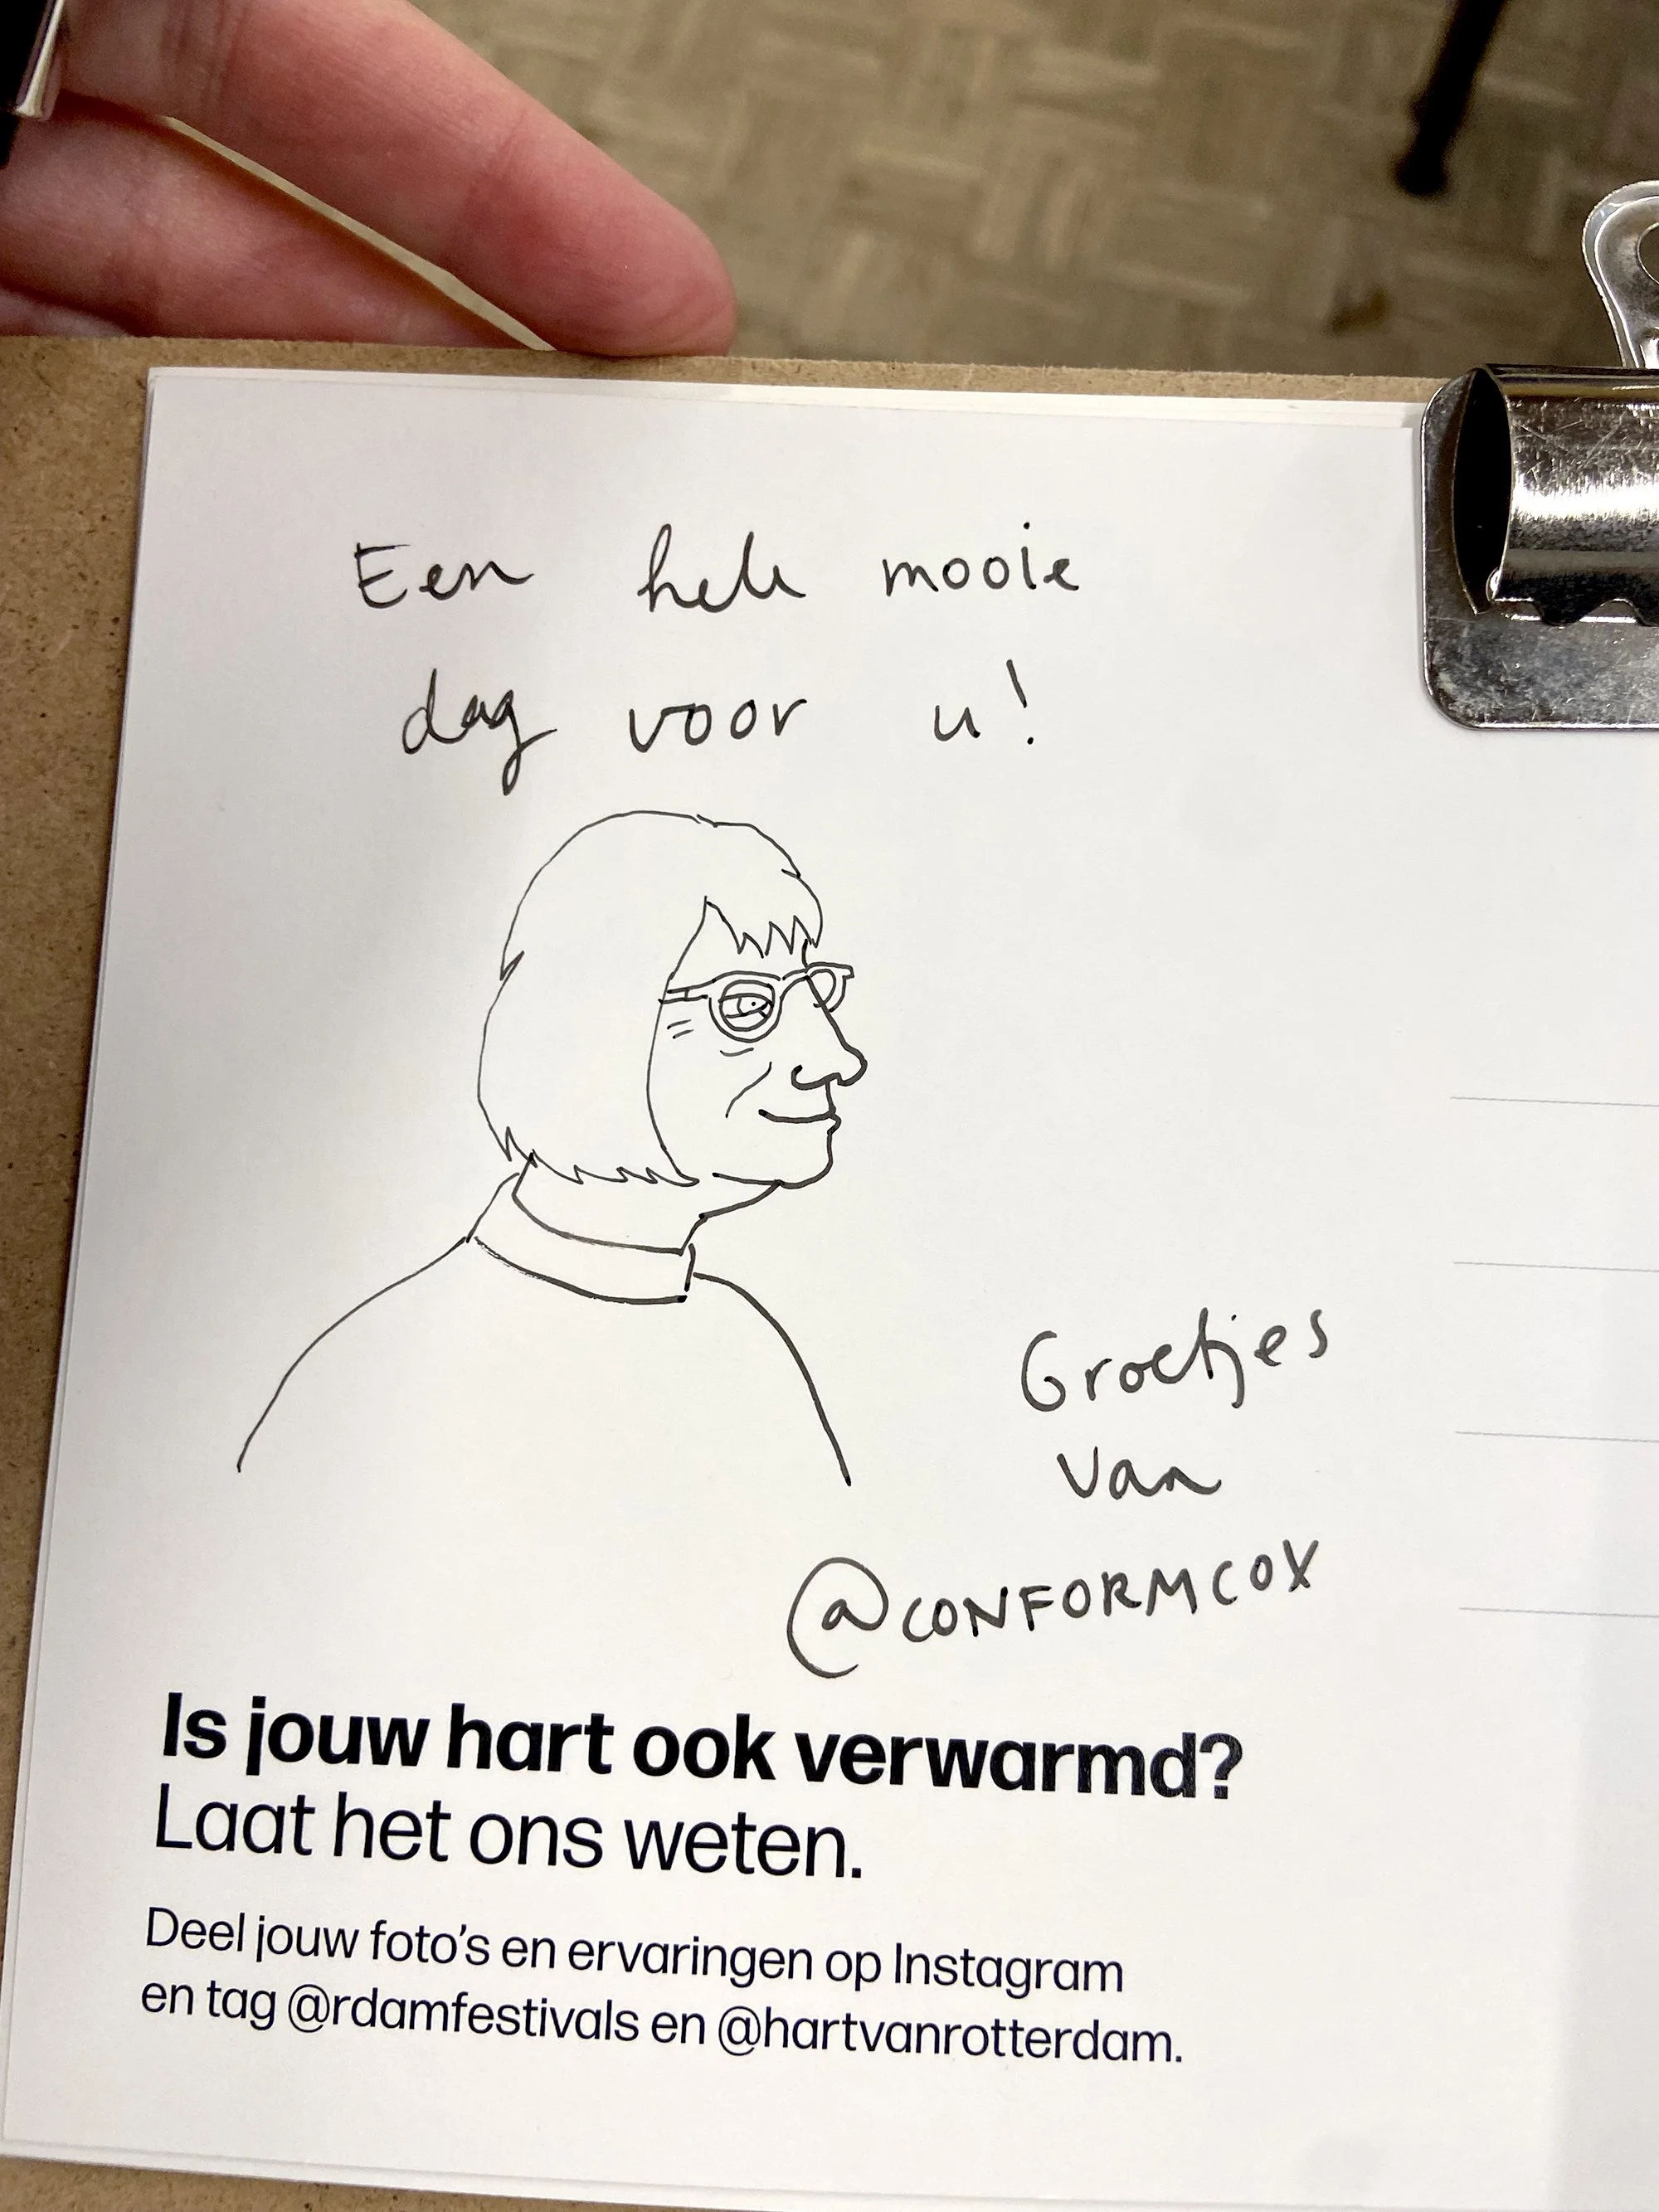 Een hele mooie
dag voor u!
Groetjes
van
@CONFORMCOX
Is jouw hart ook verwarmd?
Laat het ons weten.
Deel jouw foto's en ervaringen op Instagram
en tag @rdamfestivals en @hartvanrotterdam.